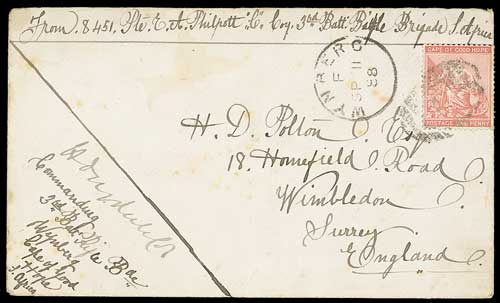 From. 8451. Pte. E. A. Philpott "C" Coy. 3rd Batt. Rifle Brigade S. Africa
WYNBERG
F
SP 11
98
CAPE OF GOOD HOPE
POSTAGE ONE PENNY
H. D. Polton. Esq
18. Homefield Road.
Wimbledon
Surrey
England.
Commanding
3rd Bn. Rifle Bde
Wynberg
Cape of Good
Hope
S. Africa